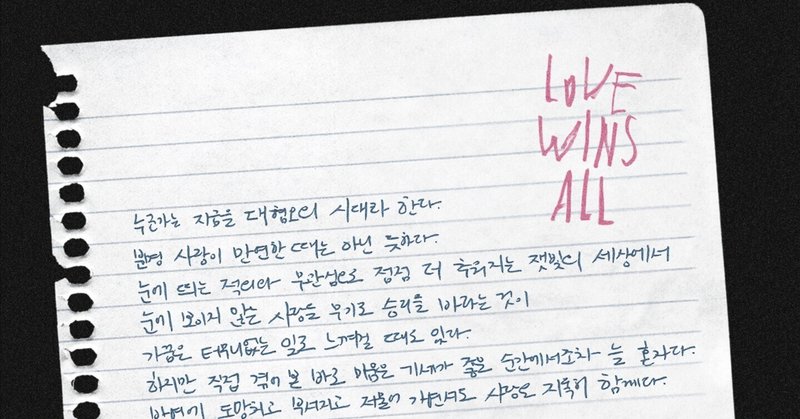 LOVE
WINS
ALL
누군가는 지금을 대혐오의 시대라 한다.
분명 사랑이 만연한 때는 아닌 듯하다.
눈에 띄는 적의와 무관심으로 점점 더 추워지는 잿빛의 세상에서
눈에 보이지 않는 사랑을 무기로 승리를 바라는 것이
가끔은 터무니없는 일로 느껴질 때도 있다.
하지만 직접 겪어 본 바로 미움은 기세가 좋은 순간에서조차 늘 혼자다.
반면에 도망치고 부서지고 저물어 가면서도 사랑은 지독히 함께다.